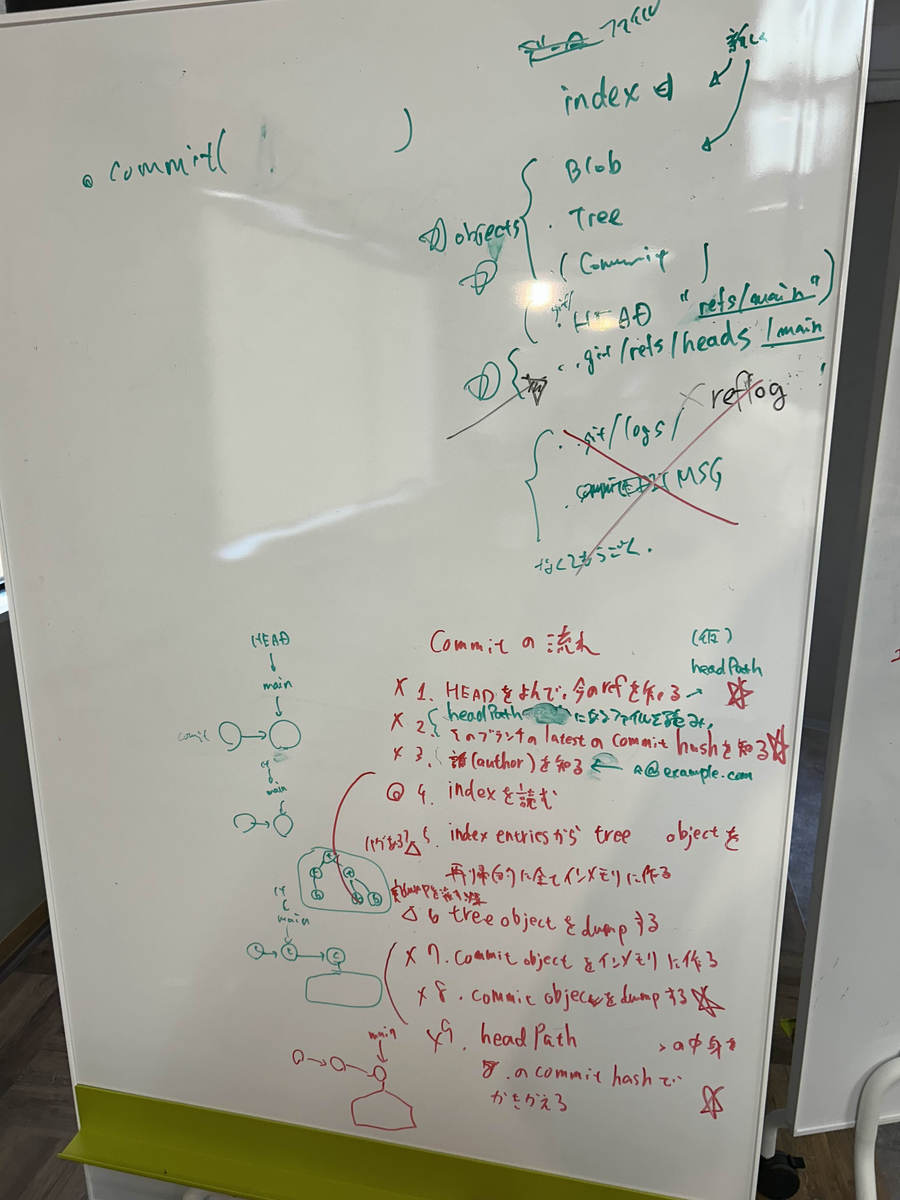 新しい
index
commit( )
Blob
objects
Tree
( Commit )
.git/
HEAD "refs/main")
.git/refs/heads/main
reflog
.git/logs/
MSG
なくてもうごく.
HEAD
main
Commitの流れ
(仮)
headPath
× 1. HEADをよんで、今のrefを知る→
× 2. headPath にあるファイルを読み,
そのブランチのlatestのCommit hashを知る
× 3. 誰(author)を知る ← a@example.com
4. indexを読む
△ 5. index entriesから tree objectを
再帰的に全てインメモリに作る
main
△ 6 tree objectをdumpする
main
× 7. Commit objectをインメモリに作る
× 8. commit objectをdumpする
main
×9. headPath の中身を
8. の commit hashで
かきかえる